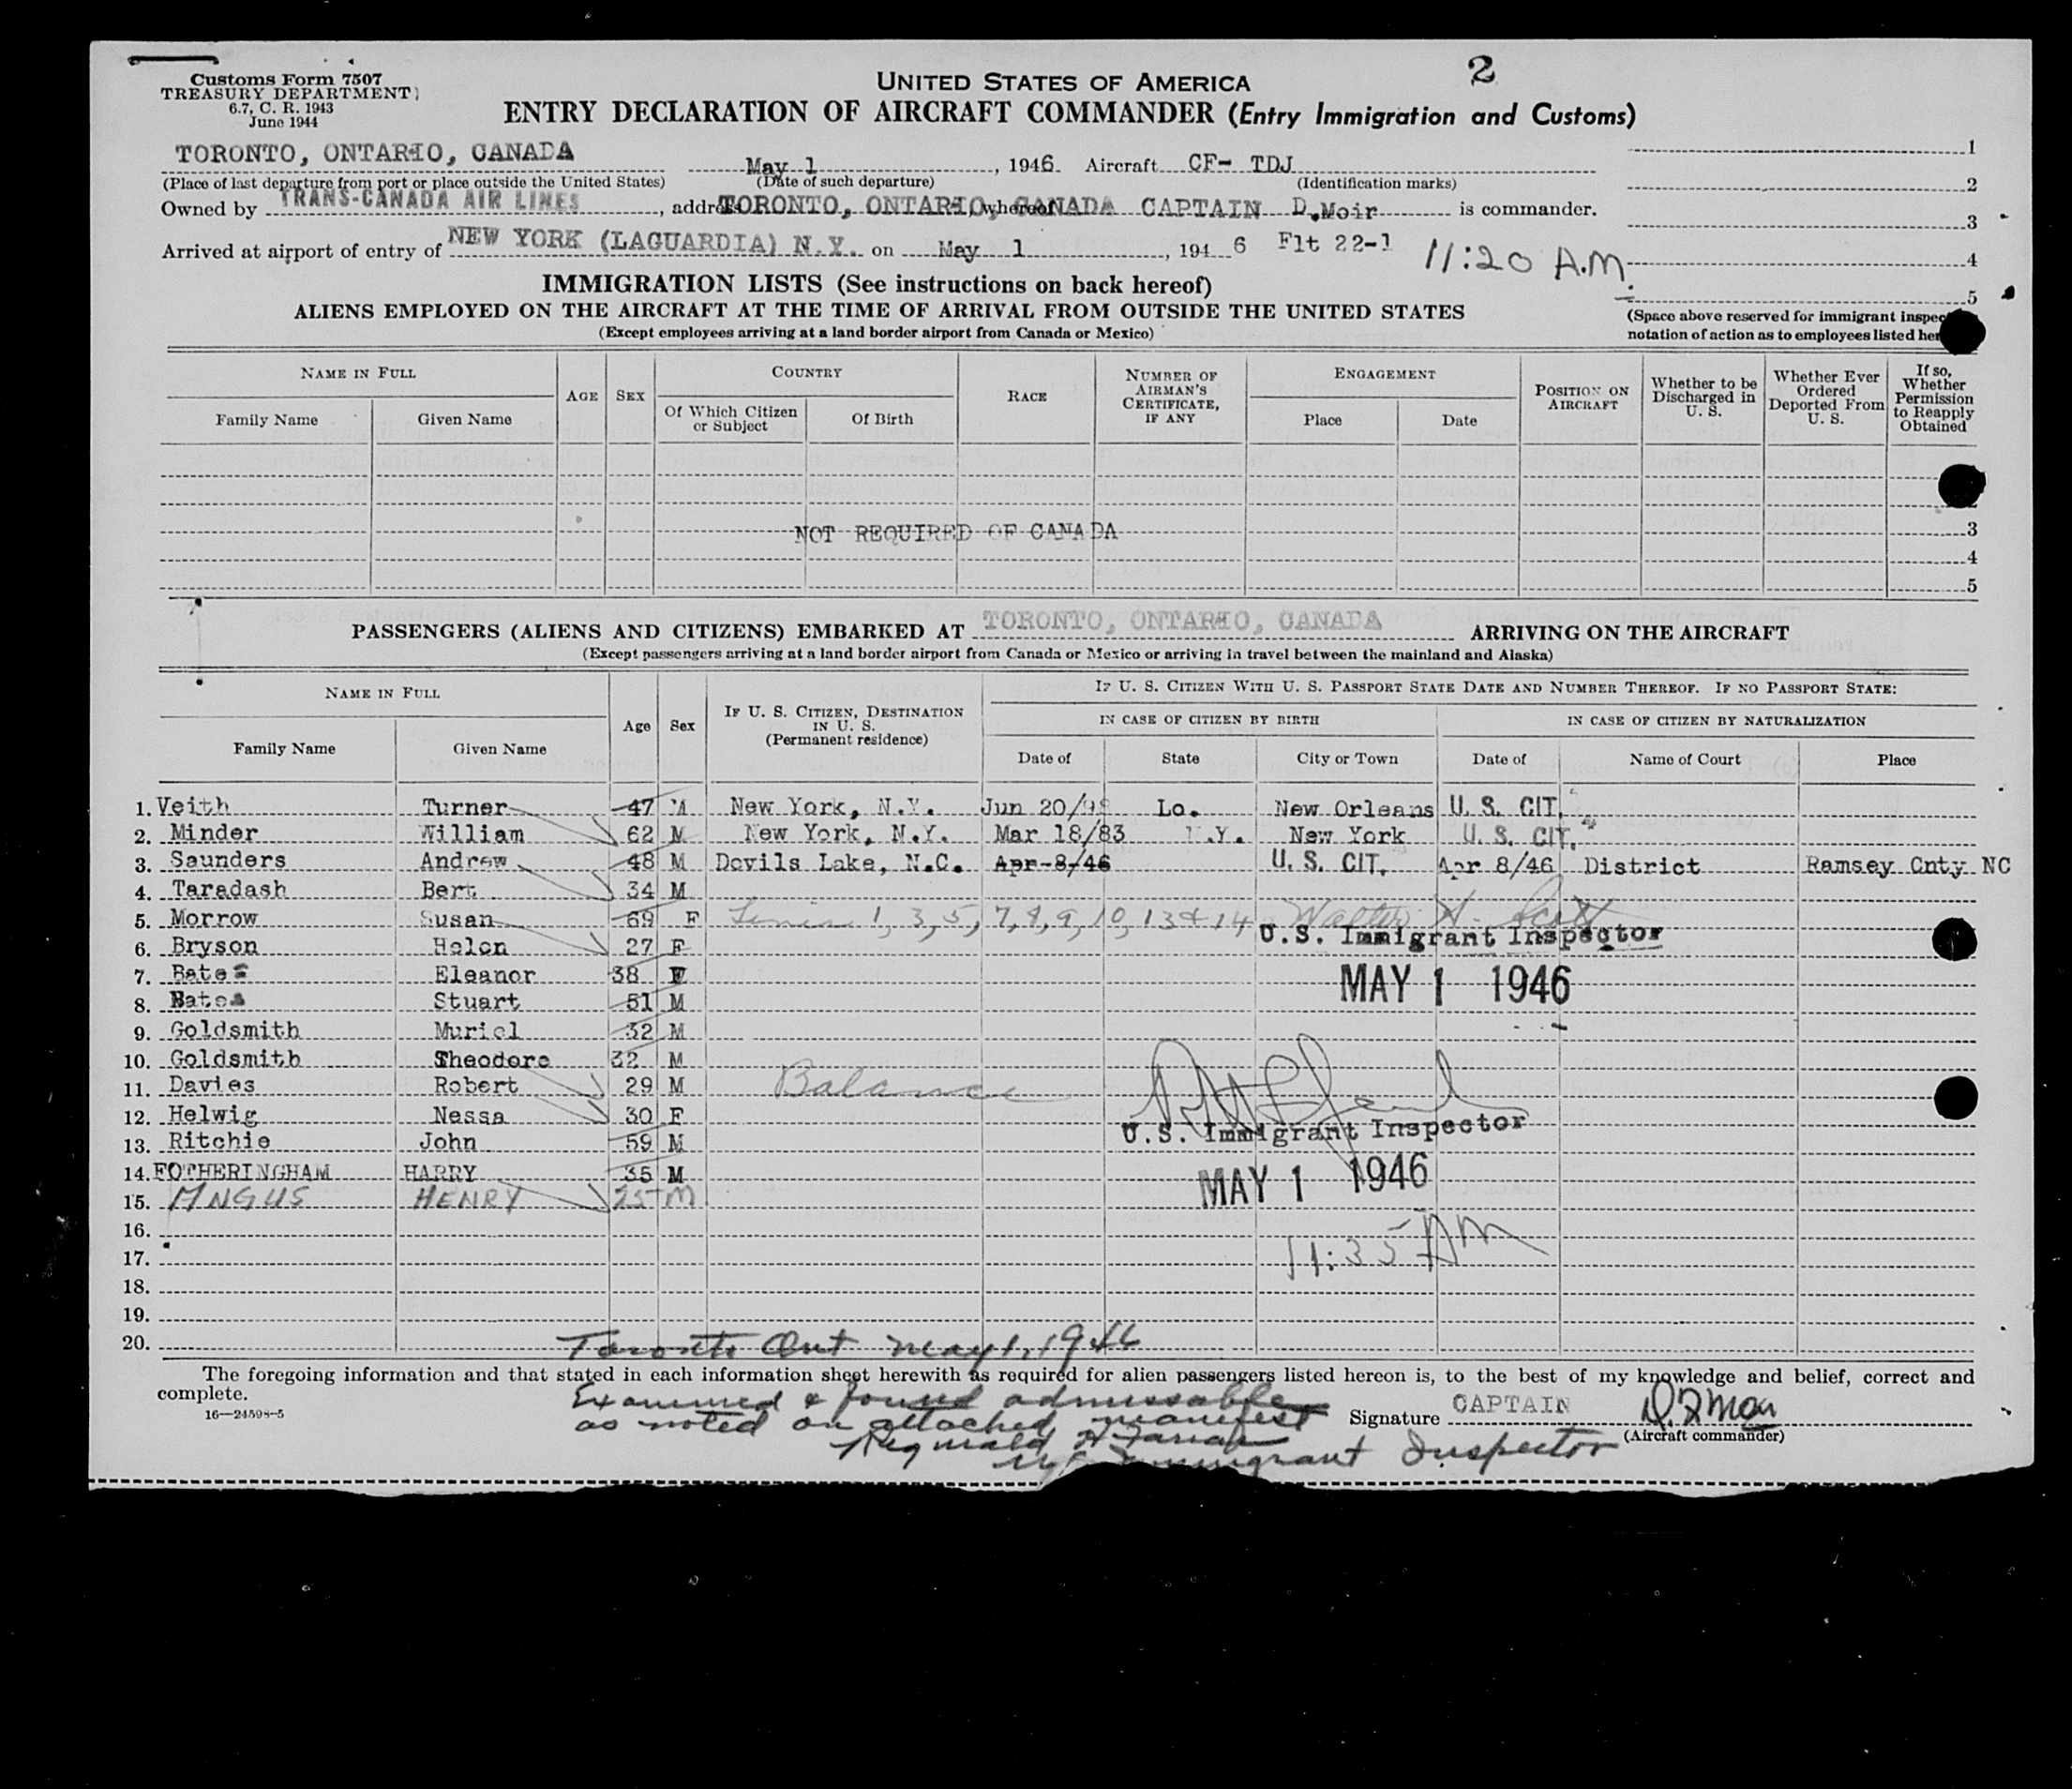 2
Customs Form 7507
TREASURY DEPARTMENT
6.7, C. R. 1943
June 1944
UNITED STATES OF AMERICA
ENTRY DECLARATION OF AIRCRAFT COMMANDER (Entry Immigration and Customs)
TORONTO, ONTARIO, CANADA May 1, 1946 Aircraft CF- TDJ 1
(Place of last departure from port or place outside the United States) (Date of such departure) (Identification marks) 2
Owned by TRANS-CANADA AIR LINES, address TORONTO, ONTARIO, CANADA whereof CAPTAIN D.Moir is commander. 3
Arrived at airport of entry of NEW YORK (LAGUARDIA) N.Y. on May 1, 1946 Flt 22-1 11:20 A.M. 4
IMMIGRATION LISTS (See instructions on back hereof) 5
ALIENS EMPLOYED ON THE AIRCRAFT AT THE TIME OF ARRIVAL FROM OUTSIDE THE UNITED STATES
(Except employees arriving at a land border airport from Canada or Mexico)
(Space above reserved for immigrant
notation of action as to employees listed
NAME IN FULL AGE SEX COUNTRY RACE NUMBER OF AIRMAN'S CERTIFICATE, IF ANY ENGAGEMENT POSITION ON AIRCRAFT Whether to be Discharged in U. S. Whether Ever Ordered Deported From U. S. If so, Whether Permission to Reapply Obtained
Family Name Given Name Of Which Citizen or Subject Of Birth Place Date
NOT REQUIRED OF CANADA 3
4
5
PASSENGERS (ALIENS AND CITIZENS) EMBARKED AT TORONTO, ONTARIO, CANADA ARRIVING ON THE AIRCRAFT
(Except passengers arriving at a land border airport from Canada or Mexico or arriving in travel between the mainland and Alaska)
NAME IN FULL Age Sex IF U. S. CITIZEN, DESTINATION IN U. S. (Permanent residence) IF U. S. CITIZEN WITH U. S. PASSPORT STATE DATE AND NUMBER THEREOF. IF NO PASSPORT STATE:
IN CASE OF CITIZEN BY BIRTH IN CASE OF CITIZEN BY NATURALIZATION
Family Name Given Name Date of State City or Town Date of Name of Court Place
1. Veith Turner 47 M New York, N.Y. Jun 20/98 Lo. New Orleans U. S. CIT.
2. Minder William 62 M New York, N.Y. Mar 18/83 N.Y. New York U. S. CIT.
3. Saunders Andrew 48 M Devils Lake, N.C. Apr-8/46 U. S. CIT. Apr 8/46 District Ramsey Cnty NC
4. Taradash Bert 34 M
5. Morrow Susan 69 F Lines 1, 3, 5, 7, 8, 9, 10, 13 & 14 Walter H. Scott
U.S. Immigrant Inspector
6. Bryson Helen 27 F
7. Bates Eleanor 38 F MAY 1 1946
8. Bates Stuart 51 M
9. Goldsmith Muriel 32 M
10. Goldsmith Theodore 32 M
11. Davies Robert 29 M Balance
12. Helwig Nessa 30 F
U.S. Immigrant Inspector
13. Ritchie John 59 M
14. FOTHERINGHAM HARRY 35 M MAY 1 1946
15. ANGUS HENRY 25 M
16.
17. 11:35 AM
18.
19.
20. Toronto Ont May 1, 1946
The foregoing information and that stated in each information sheet herewith as required for alien passengers listed hereon is, to the best of my knowledge and belief, correct and
complete.
16—24598-5
Examined & found admissable
as noted on attached manifest
Signature CAPTAIN
(Aircraft commander)
Reginald
Immigrant Inspector